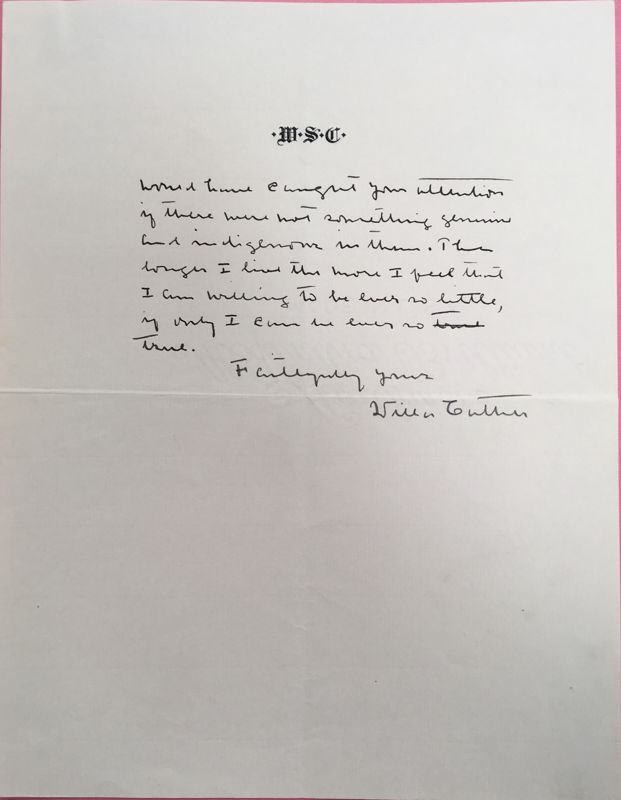 ·W·S·C·
would have caught your attention
if there were not something genuine
and indigenous in them. The
longer I live the more I feel that
I am willing to be ever so little,
if only I can be ever so true
true.
Faithfully yours
Willa Cather